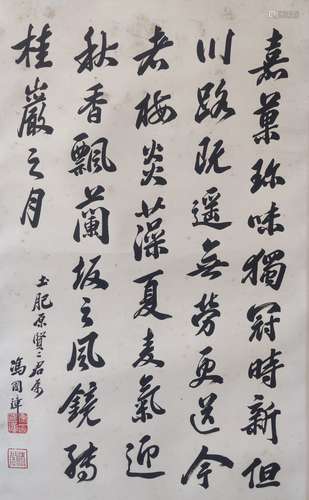 嘉菓珍味獨冠時新但
川路既遥無勞更送今
老梅炎藻夏麦氣迎
秋香飄蘭坂之風鏡轉
桂巖之月
土肥原賢二君属
馮國璋